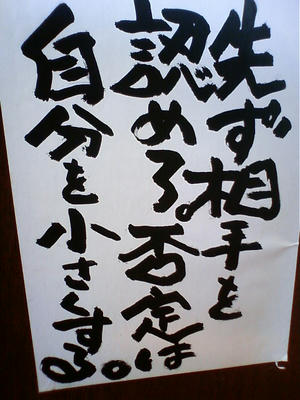 先ず相手を
認める。否定は
自分を小さくする。